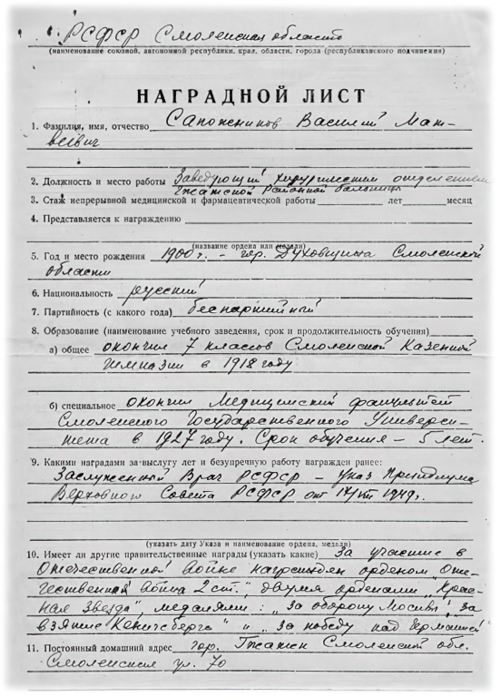 РСФСР Смоленская область
(наименование союзной, автономной республики, края, области, города (республиканского подчинения)
НАГРАДНОЙ ЛИСТ
1. Фамилия, имя, отчество Сапожников Василий Мат-
веевич
2. Должность и место работы Заведующий хирургическим отделением
Гжатской районной больницы
3. Стаж непрерывной медицинской и фармацевтической работы лет месяц
4. Представляется к награждению
(название ордена или медали)
5. Год и место рождения 1900 г. - гор. Духовщина Смоленской
области
6. Национальность русский
7. Партийность (с какого года) беспартийный
8. Образование (наименование учебного заведения, срок и продолжительность обучения)
а) общее окончил 7 классов Смоленской Казенной
гимназии в 1918 году
б) специальное окончил Медицинский факультет
Смоленского Государственного Универси-
тета в 1927 году. Срок обучения - 5 лет.
9. Какими наградами за выслугу лет и безупречную работу награжден ранее:
Заслуженный Врач РСФСР - Указ Президиума
Верховного Совета РСФСР от 1949 г.
(указать дату Указа и наименование ордена, медали)
10. Имеет ли другие правительственные награды (указать какие) За участие в
Отечественной войне награжден орденом "Оте-
чественная война 2 ст.", двумя орденами "Крас-
ная Звезда", медалями: "За оборону Москвы", "за
взятие Кенигсберга" и "за победу над Германией"
11. Постоянный домашний адрес гор. Гжатск Смоленской обл.
Смоленская ул. 70